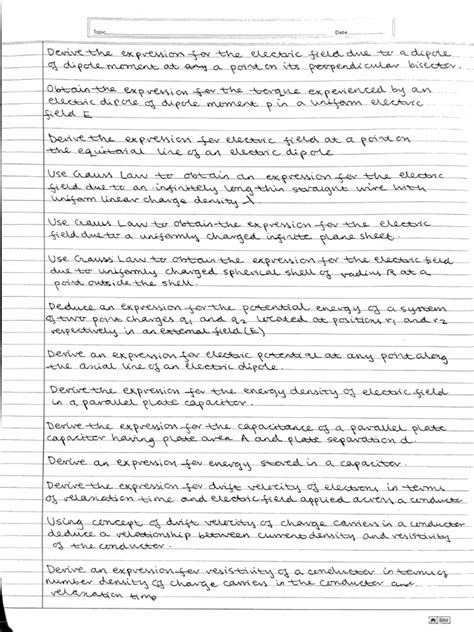 Topic
Date
Derive the expression for the electric field due to a dipole
of dipole moment at any a point on its perpendicular bisector.
Obtain the expression for the torque experienced by an
electric dipole of dipole moment p in a uniform electric
field E
Derive the expression for electric field at a point on
the equitorial line of an electric dipole
Use Gauss Law to obtain an expression for the electric
field due to an infinitely long thin straight wire with
uniform linear charge density λ
Use Gauss Law to obtain the expression for the electric
field due to a uniformly charged infinite plane sheet.
Use Gauss Law to obtain the expression for the electric field
due to uniformly charged spherical shell of radius R at a
point outside the shell.
Deduce an expression for the potential energy of a system
of two point charges q1 and q2 located at positions r1 and r2
respectively in an external field (E)
Derive an expression for electric potential at any point along
the axial line of an electric dipole.
Derive the expression for the energy density of electric field
in a parallel plate capacitor.
Derive the expression for the capacitance of a parallel plate
capacitor having plate area A and plate separation d.
Derive an expression for energy stored in a capacitor.
Derive the expression for drift velocity of electrons in terms
of relaxation time and electric field applied across a conducto
Using concept of drift velocity of charge carriers in a conductor
deduce a relationship between current density and resistivity
of the conductor.
Derive an expression for resistivity of a conductor in terms of
number density of charge carriers in the conductor and
relaxation time